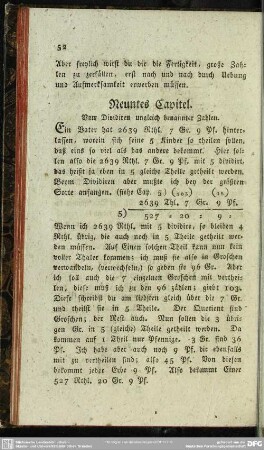 52
Aber freylich wirst du dir die Fertigkeit, große Zah-
len zu zerfällen, erst nach und nach durch Uebung
und Aufmerksamkeit erwerben müssen.
Neuntes Capitel.
Vom Dividiren ungleich benannter Zahlen.
Ein Vater hat 2639 Rthl. 7 Gr. 9 Pf. hinter-
lassen, worein sich seine 5 Kinder so theilen sollen,
daß eins so viel als das andere bekommt. Hier sol-
len also die 2639 Rthl. 7 Gr. 9 Pf. mit 5 dividirt,
das heißt ja eben in 5 gleiche Theile getheilt werden.
Beym Dividiren aber mußte ich bey der größten
Sorte anfangen. (siehe Cap. 5)
2639 Thl. 7 Gr. 9 Pf.
5) 527 : 20 : 9 :
Wenn ich 2639 Rthl. mit 5 dividire, so bleiben 4
Rthl. übrig, die auch noch in 5 Theile getheilt wer-
den müssen. Auf Einen solchen Theil kann nun kein
voller Thaler kommen: ich muß sie also in Groschen
verwandeln, (verwechseln) so geben sie 96 Gr. Aber
ich soll auch die 7 einzelnen Groschen mit verthei-
len, diese muß ich zu den 96 zählen; giebt 103.
Diese schreibst du am liebsten gleich über die 7 Gr.
und theilst sie in 5 Theile. Der Quotient sind
Groschen; der Rest auch. Nun sollen die 3 übri-
gen Gr. in 5 (gleiche) Theile getheilt werden. Da
kommen auf 1 Theil nur Pfennige. 3 Gr. sind 36
Pf. Ich habe aber auch noch 9 Pf. die ebenfalls
mit zu vertheilen sind; also 45 Pf. Von diesen
bekommt jeder Erbe 9 Pf. Also bekommt Einer
527 Rthl. 20 Gr. 9 Pf.